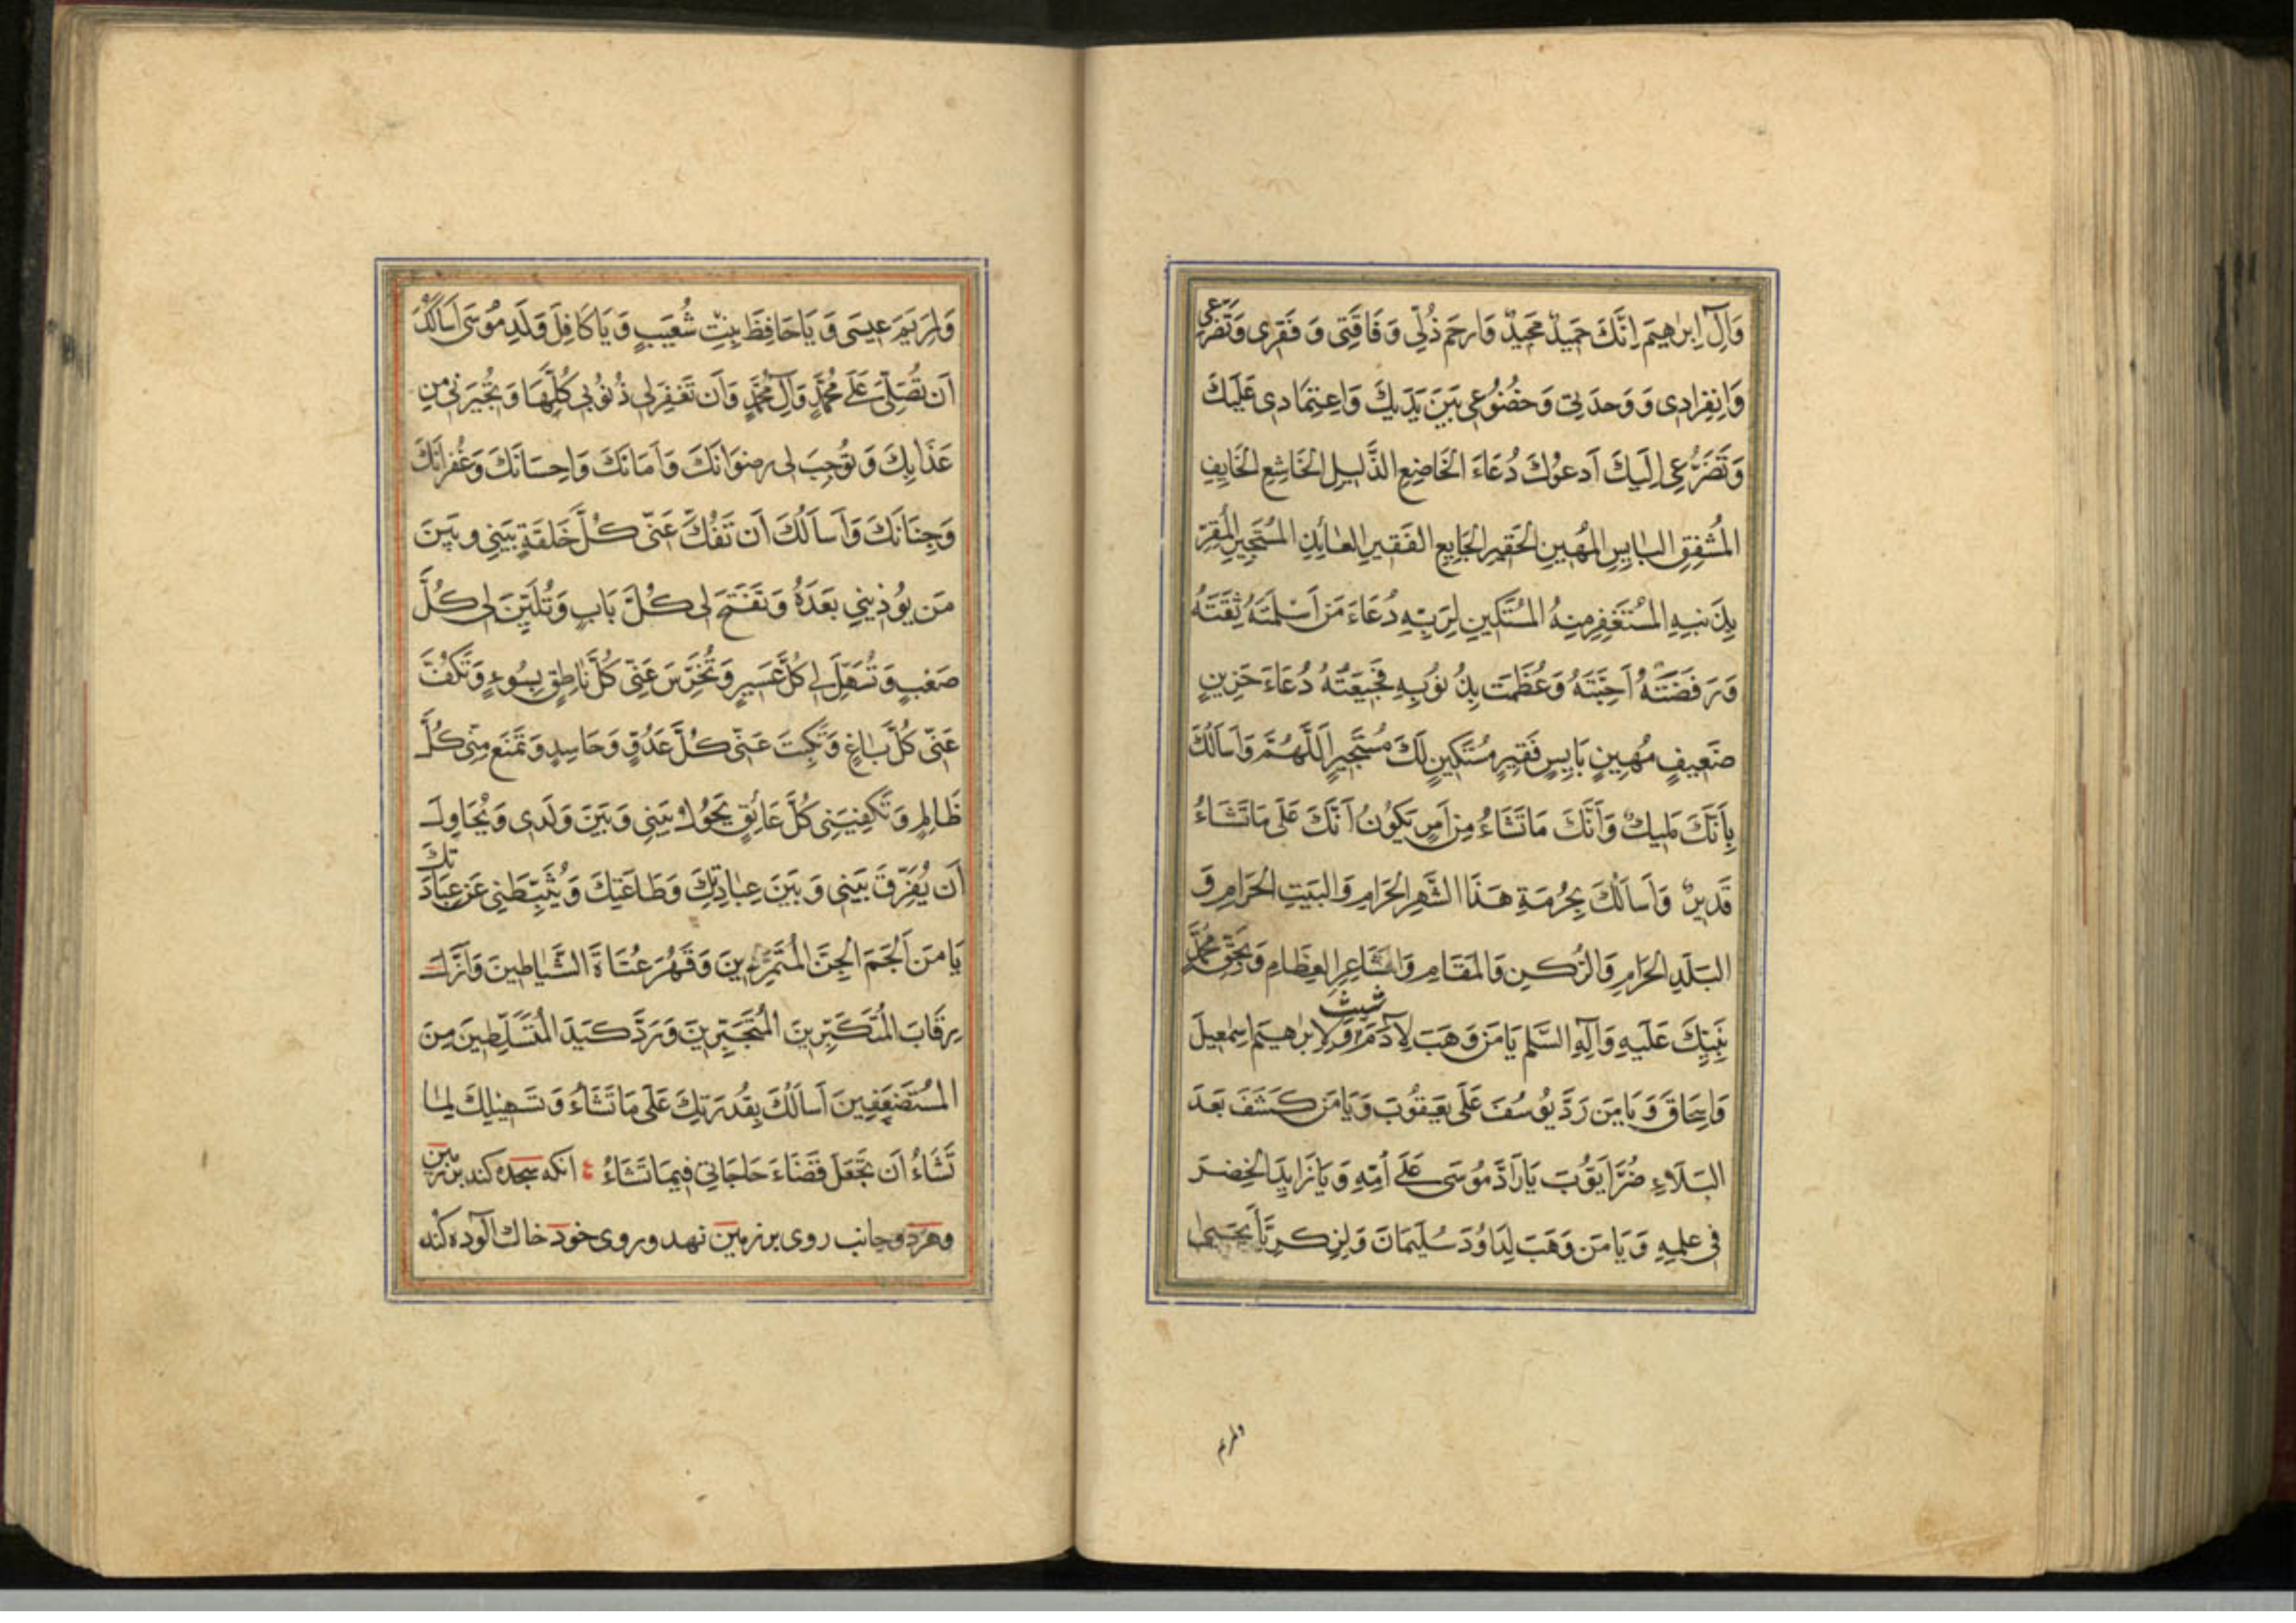 وَآلِ اِبرٰهيمَ اِنَّكَ حَميدٌ مَجيدٌ وَارحَم ذُلّي وَفَاقَتي وَ فَقرى وَتَضَرُّعى
وَانِفِرادِى وَ وَحدَتي وَخُضُوُعي بَينَ يَدَيكَ وَاعِتِمَادى عَلَيكَ
وَتَضَرُّعِى اِلَيكَ اَدعوُكَ دُعَاءَ الخَاضِعِ الذَّليلِ الخَاشِعِ الخَايِفِ
المُشفِقِ البٰايِسِ المُهينِ الحَقيرِ الجَايِعِ الفَقيرِ العٰائِذِ المُستَجيرِ المُقِرّ
بِذَنبِهِ المُستَغفِرِ مِنهُ المُستَكينِ لِرَبِّهِ دُعَاءَ مَن اَسْلَمَتهُ ثِقَتَهُ
وَرَفَضَتهُ اَحِبَّتَهُ وَعُظَمَت ذِنُوبِهِ فَجيعَتُهُ دُعَاءَ حَزينٍ
ضَعيفٍ مُهينٍ بَايِسٍ فَقيرٍ مُستَكينٍ لَكَ مُستَجيرٍ اَللّهُمَّ وَاَساَلُكَ
بِاَنَّكَ مَليكٌ وَاَنَّكَ مَاتَشَاءُ مِن اَمرٍ يَكوُنُ اَنَّكَ عَلَى مَاتَشَاءُ
قَديرٌ وَاَساَلُكَ بِحُرمَةِ هَذَا الشَّهرِ الحَرامِ وَالبَيتِ الحَرامِ وَ
البَلَدِ الحَرامِ وَالرُّكنِ وَالمَقَامِ وَالمَشَاعِرِ العِظٰامِ وَبِحَقِّ مُحَمَّدٍ
نَبِيِّكَ عَلَيهِ وَآلِهِ السَّلم يَامَن وَهَبَ لِآدَمَ شيث وَلِاِبرٰهيمَ اِسمٰعيلَ
وَاِسحَاقَ وَ يَا مَن رَدَّ يوُسُفَ عَلَى يَعقوُبَ وَيَامَن كَشَفَ بَعدَ
البَلَاءِ ضُرَّ اَيّوُبَ يَارَادَّ مُوسَى عَلَى اُمِّهِ وَ يَازَايِدَ الخِضرَ
فى عِلمِهِ وَ يَامَن وَهَبَ لِدَاوُدَ سُلَيمَانَ وَلِزِكرِيَّا يَحيىٰ
ولمريم
وَلِمَريَمَ عيسَى وَ يَاحَافِظَ بِنتِ شُعَيبٍ وَ يَاكَافِلَ وَلَدِ مُوسَى اَساَلُكَ
اَن تُصَلِّىَ عَلَى مُحَمَّدٍ وَآلِ مُحَمَّدٍ وَاَن تَغفِرَلى ذُنوُبي كُلَّهَا وَ تُجيرَنى مِن
عَذَابِكَ وَ توُجِبَ لى رِضوَانَكَ وَ اَمَانَكَ وَاحِسَانَكَ وَغُفرانَكَ
وَجِنَانَكَ وَاَساَلُكَ اَن تَفُكَّ عَنّى كُلَّ حَلقَةٍ بَينى وبَينَ
مَن يوُذينى بَعدَهُ وَ تَفتَحَ لى كُلَّ بَابٍ وَتُلَيِّنَ لى كُلَّ
صَعبٍ وَ تُسَهِّلَ لى كُلَّ عَسيرٍ وَ تُخرِسَ عَنّى كُلَّ نَاطِقٍ بِسُوءٍ وَتَكُفَّ
عَنّى كُلَّ بٰاغٍ وَتَكبِتَ عَنّى كُلَّ عَدُوٍّ وَحَاسِدٍ وَتَمنَعَ مِنّى كُلَّ
ظَالِمٍ وَ تَكفِيَنى كُلَّ عَائِقٍ يَحوُلُ بَينى وَ بَينَ وَلَدى وَيُحَاوِلُ
اَن يُفَرِّقَ بَينى وَ بَينَ عِبٰادَتِكَ وَطَاعَتِكَ وَ يُثَبِّطَنى عَن عِبَادَتِكَ
يَا مَن اَلجَمَ الجِنَّ المُتَمَرِّدينَ وَقَهَرَ عُتَاةَ الشَّيٰاطينَ وَاَذَلَّ
رِقَابَ المُتَكَبِّرينَ المُتَجَبِّرينَ وَرَدَّ كَيدَ المُتَسَلِّطينَ مِنَ
المُستَضعَفينَ اَساَلُكَ بِقُدرَتِكَ عَلَى مَا تَشَاءُ وَ تَسهيلِكَ لِمٰا
تَشَاءُ اَن تَجعَلَ قَضَاءَ حَاجَاتى فيمَاتَشَاءُ آنكه سجده كند بر زمين
وهردو جانب روى بر زمين نهد و روى خود خاك آلوده كند